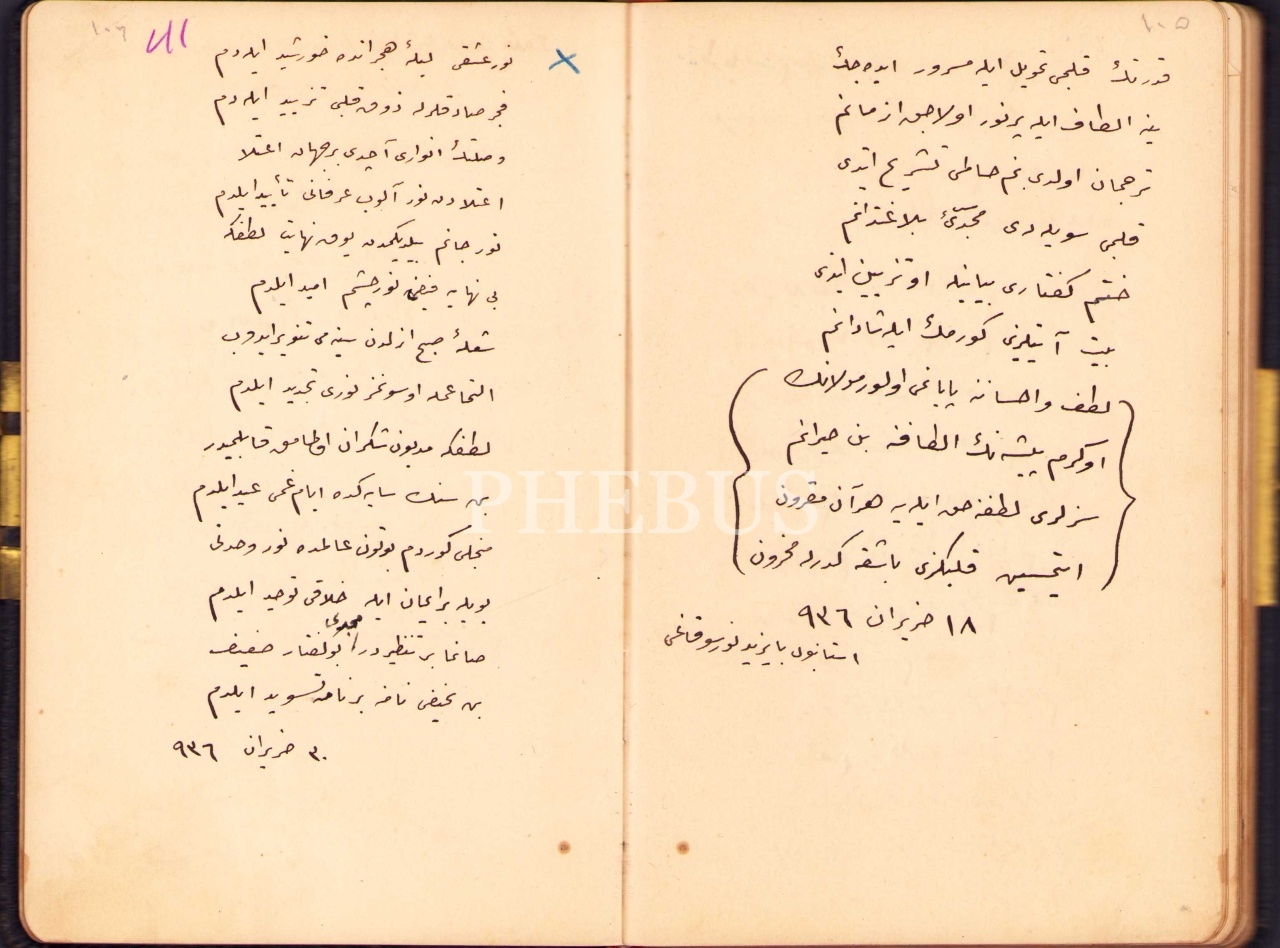 ١٠٥
قدرتك قلبمی تحویل ایله مسرور ایده‌جك
ینه الطاف ایله پرنور اولاجق ازمانم
ترجمان اولدی بنم حاطی تشریح ایتدی
قلبمی سویله‌دی مجدئ بلاغتدانم
ختم كفتاری بیانیله او تزیین ایتدی
بیت آتیلرینی كورمك ایله شادانم
لطف واحساننه پایانمی اولور مولانك
او كرم پیشه‌نك الطافنه بن حیرانم
سزلری لطفنه حق ایلیه هر آن مقرون
ایتمسین قلبكزی باشقه كدرله محزون
١٨ حزیران ٩٣٦
استانبول بایزید نور سوقاغی
١٠٦
نور عشقی لیلۀ هجرانده خورشید ایلدم
فجر صادقلرله ذوق قلبی تزیید ایلدم
وصلتك انواری آچدی بر جهان اعتلا
اعتلادن نور آلوب عرفانی تأیید ایلدم
نور جانم بیلدیكمدن یوق نهایت لطفكه
بی نهایه فیض نورچشم امید ایلدم
شعلۀ صبح ازلدن سینه‌می تنویر ایدوب
التماعمله او سونمز نوری تجدید ایلدم
لطفكه مدیون شكران اولمامق قابلمیدر
بن سنك سایه‌كده ایام غمی عید ایلدم
منجلی كوردم بوتون عالمده نور وحدتی
بویله بر ایمان ایله خلاقی توحید ایلدم
صانما بر تنظیردر مجدی بو كفتار ضعیف
بن نحیفی نامنه برنامه تسوید ایلدم
٣٠ حزیران ٩٣٦
PHEBUS